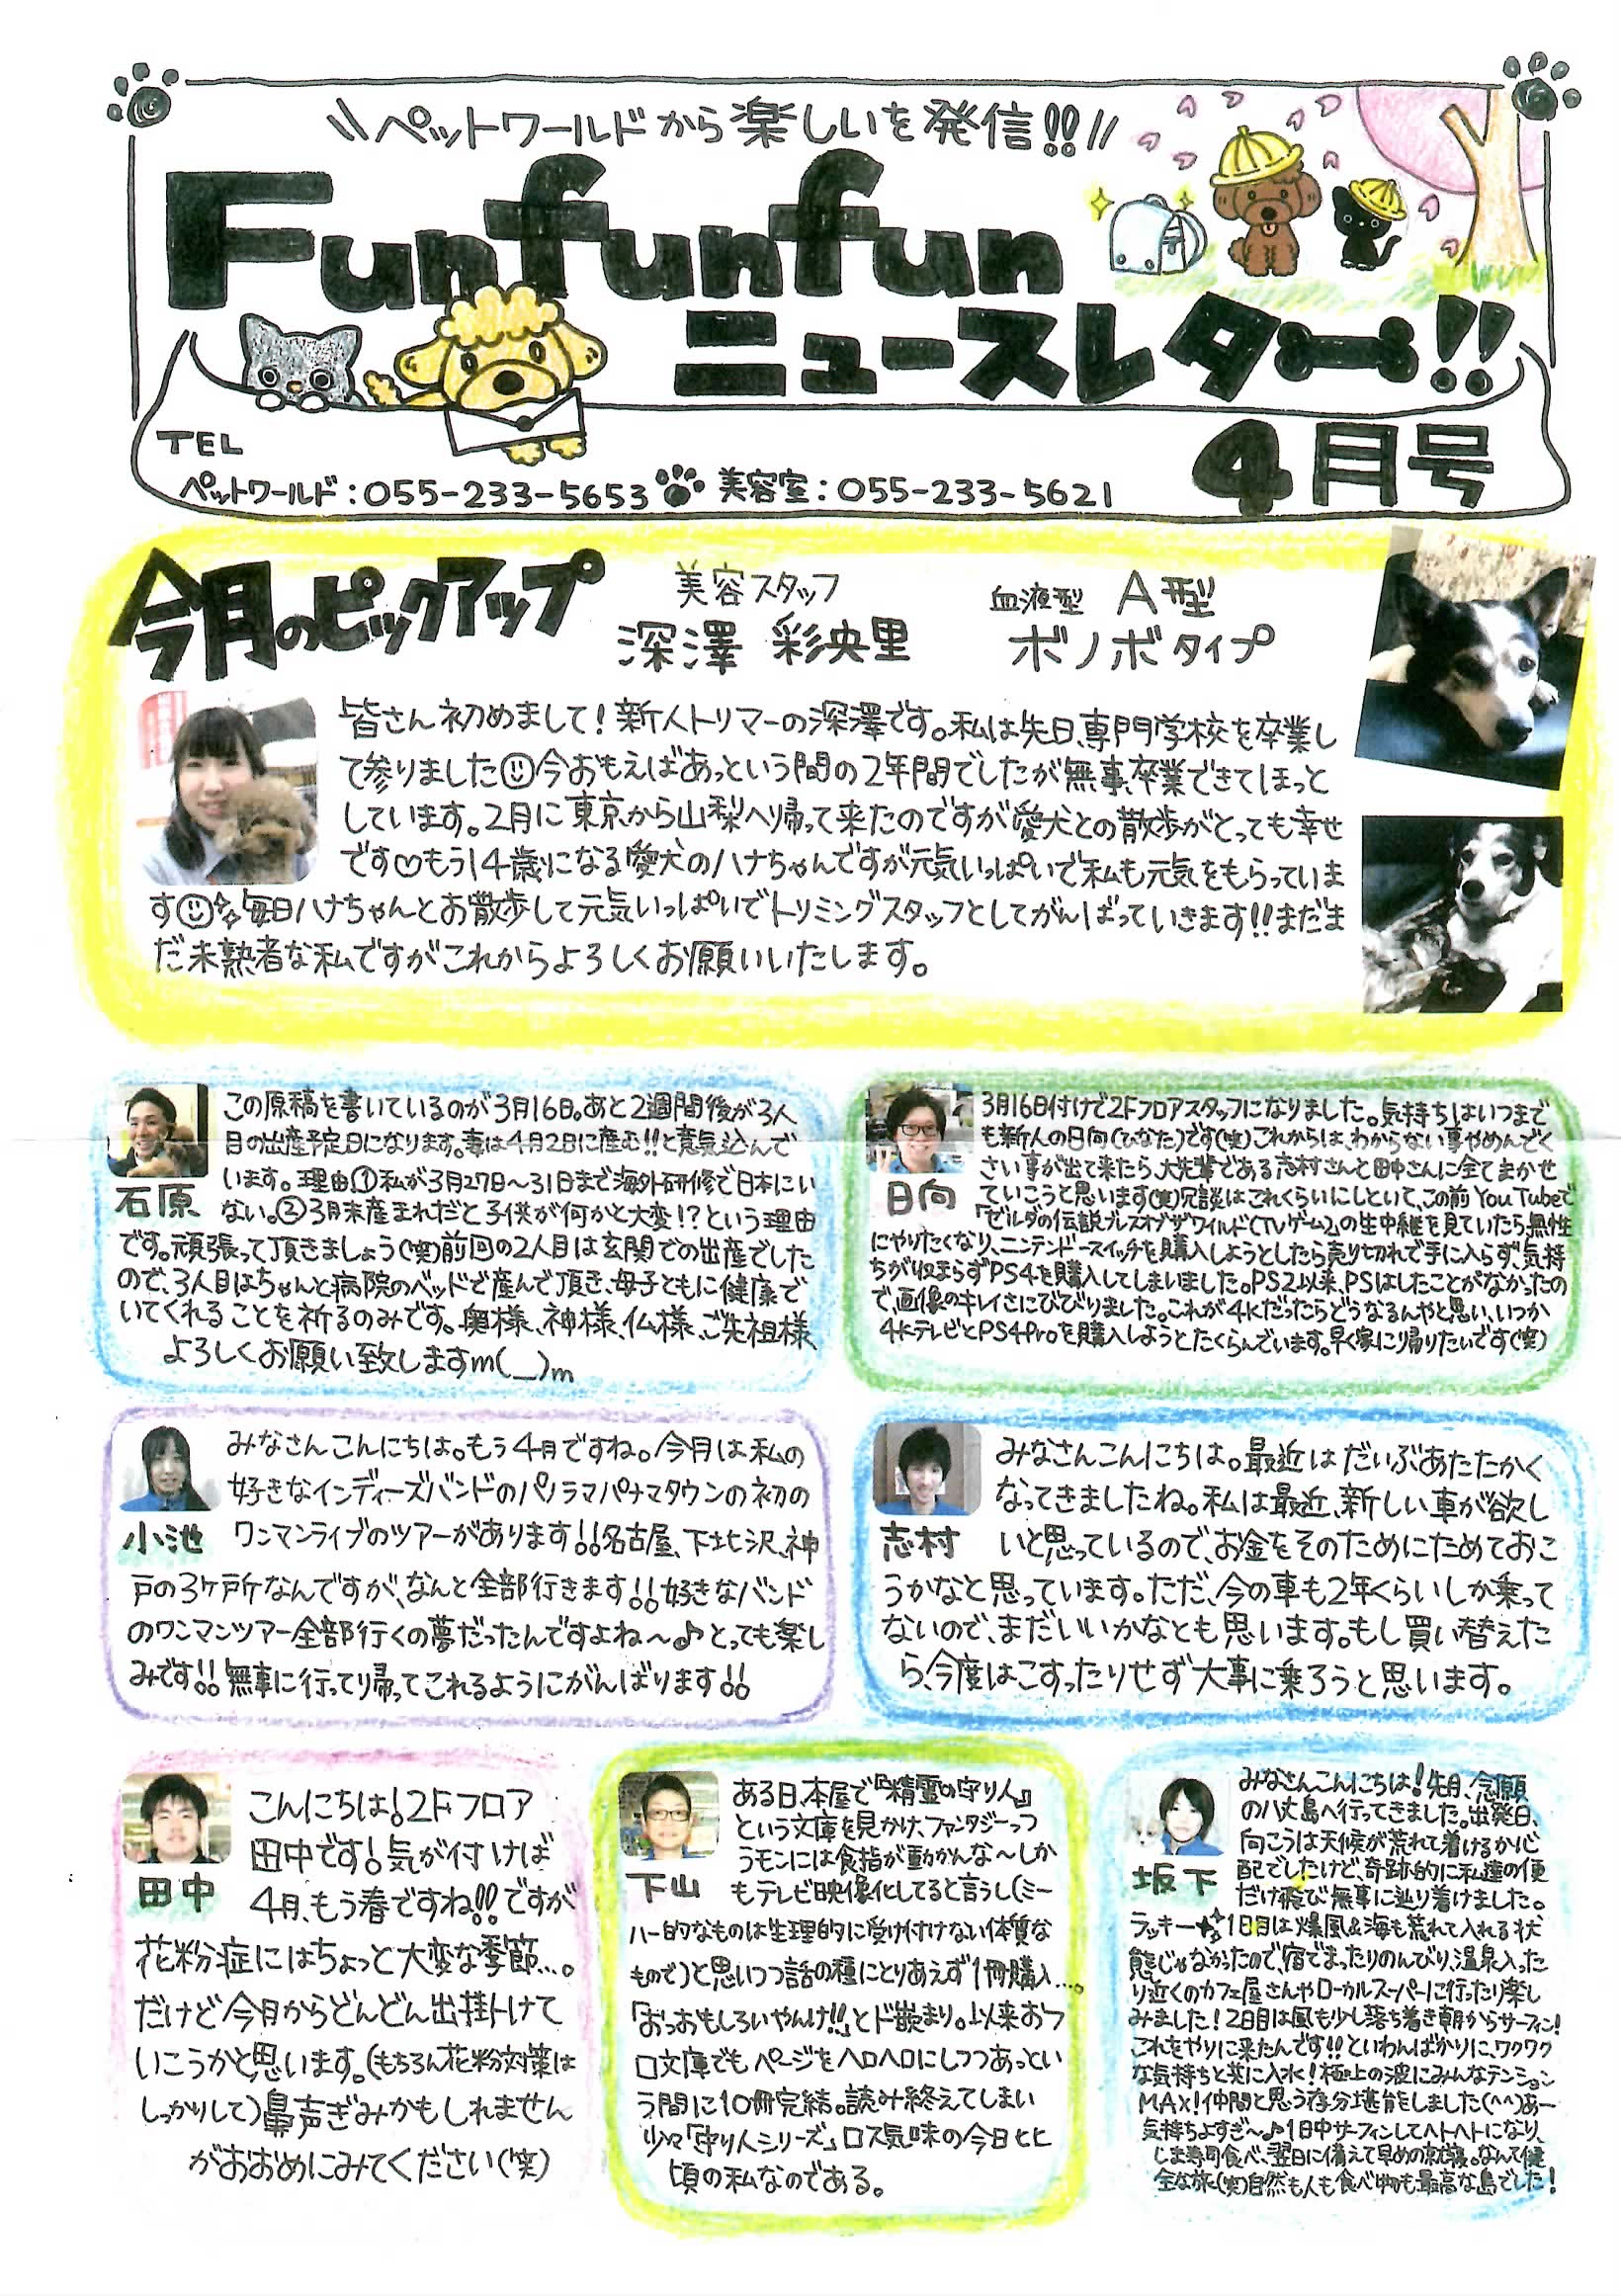 \\ペットワールドから楽しいを発信!!//
Funfunfun
ニュースレター!!
4月号
TEL
ペットワールド:055-233-5653 美容室:055-233-5621
今月のピックアップ
美容スタッフ
深澤 彩央里
血液型 A型
ボノボタイプ
皆さん初めまして!新人トリマーの深澤です。私は先日、専門学校を卒業し
て参りました今おもえばあっという間の2年間でしたが無事、卒業できてほっと
しています。2月に東京から山梨へ帰って来たのですが愛犬との散歩がとっても幸せ
です♡もう14歳になる愛犬のハナちゃんですが元気いっぱいで私も元気をもらっていま
す毎日ハナちゃんとお散歩して元気いっぱいでトリミングスタッフとしてがんばっていきます!!まだま
だ未熟者な私ですがこれからよろしくお願いいたします。
石原
この原稿を書いているのが3月16日。あと2週間後が3人
目の出産予定日になります。妻は4月2日に産む!!と意気込んで
います。理由①私が3月27日~31日まで海外研修で日本にい
ない。②3月末産まれだと子供が何かと大変!?という理由
です。頑張って頂きましょう(笑)前回の2人目は玄関での出産でした
ので、3人目はちゃんと病院のベッドで産んで頂き、母子ともに健康で
いてくれることを祈るのみです。奥様、神様、仏様、ご先祖様
よろしくお願い致しますm(__)m
日向
3月16日付けで2Fフロアスタッフになりました。気持ちはいつまで
も新人の日向(ひなた)です(笑)これからは、わからない事やめんどく
さい事が出て来たら、大先輩である志村さんと田中さんに全てまかせ
ていこうと思います(笑)冗談はこれくらいにしといて、この前YouTubeで
「ゼルダの伝説ブレスオブザワイルド(TVゲーム)」の生中継を見ていたら無性
にやりたくなり、ニンテンドースイッチを購入しようとしたら売り切れで手に入らず、気持
ちが収まらずPS4を購入してしまいました。PS2以来、PSはしたことがなかったの
で、画像のキレイさにびびりました。これが4Kだったらどうなるんやと思い、いつか
4KテレビとPS4Proを購入しようとたくらんでいます。早く家に帰りたいです(笑)
小池
みなさんこんにちは。もう4月ですね。今月は私の
好きなインディーズバンドのパノラマパナマタウンの初の
ワンマンライブのツアーがあります!!名古屋、下北沢、神
戸の3ヶ所なんですが、なんと全部行きます!!好きなバンド
のワンマンツアー全部行くの夢だったんですよね~♪とっても楽し
みです!!無事に行って帰ってこれるようにがんばります!!
志村
みなさんこんにちは。最近はだいぶあたたかく
なってきましたね。私は最近、新しい車が欲し
いと思っているので、お金をそのためにためておこ
うかなと思っています。ただ、今の車も2年くらいしか乗って
ないので、まだいいかなとも思います。もし買い替えた
ら、今度はこすったりせず大事に乗ろうと思います。
田中
こんにちは!2Fフロア
田中です!気が付けば
4月、もう春ですね!!ですが
花粉症にはちょっと大変な季節…。
だけど今月からどんどん出掛けて
いこうかと思います。(もちろん花粉対策は
しっかりして)鼻声ぎみかもしれません
がおおめにみてください(笑)
下山
ある日、本屋で『精霊の守り人』
という文庫を見かけ、ファンタジーっつ
うモンには食指が動かんな~しか
もテレビ映像化してると言うし(ミー
ハー的なものは生理的に受け付けない体質な
もので)と思いつつ話の種にとりあえず1冊購入…。
「おっおもしろいやんけ!!」とド嵌まり。以来おフ
ロ文庫でもページをヘロヘロにしつつあっとい
う間に10冊完結。読み終えてしまい
少々「守り人シリーズ」ロス気味の今日ヒヒ
頃の私なのである。
坂下
みなさんこんにちは!先月、念願
の八丈島へ行ってきました。出発日、
向こうは天候が荒れて着けるか心
配でしたけど、奇跡的に私達の便
だけ飛び無事に辿り着けました。
ラッキー1日目は爆風&海も荒れて入れる状
態じゃなかったので、宿でまったりのんびり、温泉入った
り近くのカフェ屋さんやローカルスーパーに行ったり楽し
みました!2日目は風も少し落ち着き朝からサーフィン!
これをやりに来たんです!!といわんばかりに、ワクワク
な気持ちと共に入水!極上の波にみんなテンション
MAX!仲間と思う存分堪能しました(^^)あー
気持ちよすぎ~♪1日中サーフィンしてヘトヘトになり、
しま寿司食べ、翌日に備えて早めの就寝。なんて健
全な旅(笑)自然も人も食べ物も最高な島でした!